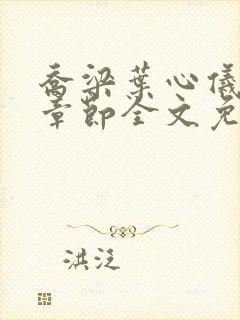 乔梁叶心仪
章节全文免
洪泛